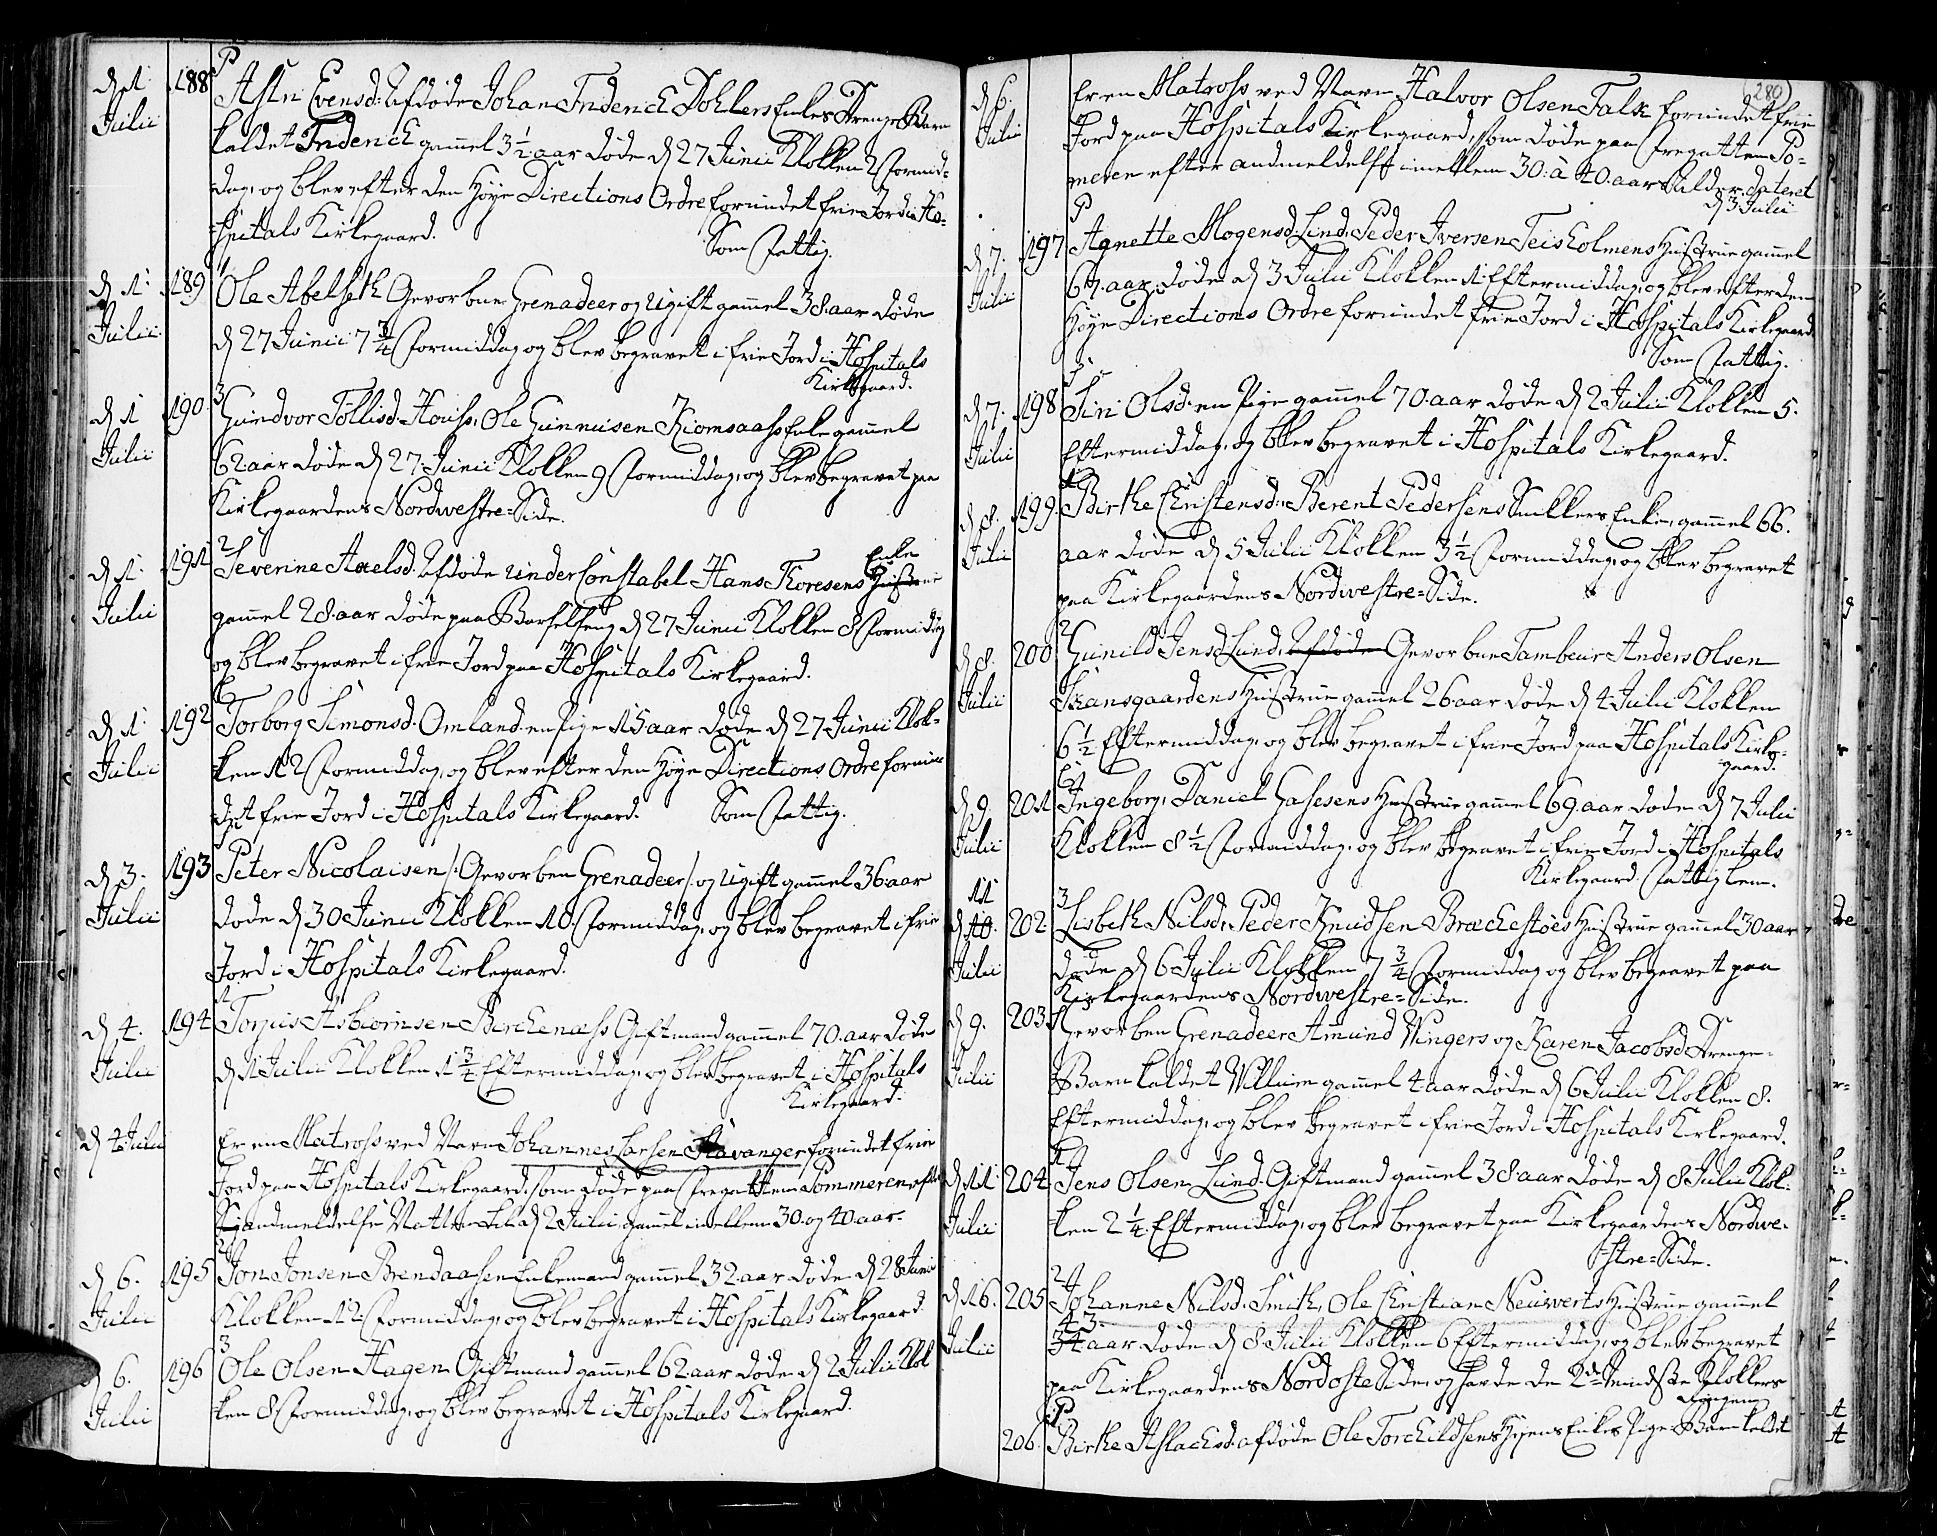 d. 1. 188 P Astri Evensd: Afdøde Johan Friderich Dohlers Enkes Drenge Barn
Julii kaldet Friderich gammel 3 1/2 aar døde d 27 Junii Klokken 2 Formid-
dag, og blev efter den Høye Directions Ordre forundet frie Jord i Ho-
spitals Kirkegaard. Som Fattig.
d. 1. 189 1 Ole Abelseth Gevorben Grenadeer og Ugift gammel 38 aar døde
Julii d 27 Junii 7 3/4 Formiddag og blev begravet i frie Jord i Hospitals
Kirkegaard.
d. 1 190 3 Gundvor Tollisd: Houss, Ole Gunnusen Kiomsaass Enke gammel
Julii 62 aar døde d 27 Junii Klokken 9 Formiddag, og blev begravet paa
Kirkegaardens Nordwestre-Side.
Enke
d. 1. 191 2 Severine Axelsd. Afdøde underConstabel Hans Thoresens Hustrue
Julii gammel 28 aar døde paa Barselseng d 27 Junii Klokken 8 Formidag
og blev begravet i frie Jord paa Hospitals Kirkegaard.
d. 1. 192 Torborg Simonsd. Omland en Pige 15 aar døde d 27 Junii Klok-
Julii ken 12 Formiddag, og blev efter den Høye Directions Ordre forun-
det frie Jord i Hospitals Kirkegaard. Som Fattig.
d. 3. 193 Peter Nicolaisen /: Gevorben Grenadeer / og Ugift gammel 36 aar
Julii døde d 30 Junii Klokken 10 Formiddag, og blev begravet i frie
Jord i Hospitals Kirkegaard.
d. 4. 194 1 Torjus Asbiørnsen Birchenæss Giftmand gammel 70 aar døde
Julii d 1 Julii Klokken 1 3/4 Eftermiddag, og blev begravet i Hospitals
Kirkegaard.
d 4 Julii Er en Matross ved Navn Johannes Larsen Stavanger forundet frie
Jord paa Hospitals Kirkegaard, som døde paa Fregatten Pommeren efter
andmeldelse Natten til d 2 Julii gammel imellem 30 og 40 aar.
d 6. 195 2 Jon Jonsen Brendaasen Enkemand gammel 32 aar døde d 28 Junii
Julii Klokken 12 Formiddag, og blev begravet i Hospitals Kirkegaard.
d 6. 196 3 Ole Olsen Hagen Giftmand gammel 62 aar døde d 2 Julii Klok-
Julii ken 8 Formiddag, og blev begravet i Hospitals Kirkegaard.
(280)
d 6. Er en Matross ved Navn Halvor Olsen Falk forundet frie
Julii Jord paa Hospitals Kirkegaard, som døde paa Fregatten Po-
meren efter andmeldelse imellem 30 à 40 aar Alder dateret
d 3 Julii
d 7. 197 P Agnette Mogensd: Lind, Peder Iversen Teisholmens Hustrue gammel
Julii 67 aar, døde d 3 Julii Klokken 1 Eftermiddag, og blev efter den
Høye Directions Ordre forundet frie Jord i Hospitals Kirkegaard
Som Fattig.
d 7. 198 Siri Olsd: en Pige gammel 70 aar døde d 2 Julii Klokken 5.
Julii Eftermiddag, og blev begravet i Hospitals Kirkegaard.
d 8. 199 1 Birthe Christensd: Berent Pedersens Enke, gammel 66.
Julii aar døde d 5 Julii Klokken 3 1/2 Formiddag, og blev begravet
paa Kirkegaardens Nordwestre-Side.
d 8. 200 2 Gunild Jensd Lund, Afdøde Gevorben Tambeur Anders Olsen
Julii Skansgaardens Hustrue gammel 26 aar døde d 4 Julii Klokken
6 1/2 Eftermiddag, og blev begravet i frie Jord paa Hospitals Kirke-
gaard.
d 9. 201 Ingeborg, Daniel Gasesens Hustrue gammel 69 aar døde d 7 Julii
Julii Klokken 8 1/2 Formiddag, og blev begravet i frie Jord i Hospitals
Kirkegaard. Fattig lem.
11
d 10. 202 3 Lisbeth Nilsd, Peder Knudsen Brackestøes Hustrue gammel 30 aar
Julii døde d 6 Julii Klokken 7 3/4 Formiddag og blev begravet paa
Kirkegaardens Nordwestre-Side.
d 9. 203 Gevorben Grenadeer Amund Wingers og Karen Jacobsd Drenge-
Julii Barn kaldet Willum gammel 4 aar døde d 6 Julii Klokken 8.
Eftermiddag, og blev begravet i frie Jord i Hospitals Kirkegaard.
d 11. 204 1 Jens Olsen Lund Giftmand gammel 38 aar døde d 8 Julii Klok-
Julii ken 2 1/4 Eftermiddag, og blev begravet paa Kirkegaardens Nordwe-
stre-Side.
d 16. 205 2 Johanne Nilsd. Smith, Ole Christian Neuwerts Hustrue gammel
43.
Julii 34 aar døde d 8 Julii Klokken 6 Eftermiddag, og blev begravet
paa Kirkegaardens Nordoste Side og havde de 2de mindste Klokkers
Ringning
206. P Birthe Aslachsd: afdøde Ole Torchildsens Enkes Pige-Barn kaldet